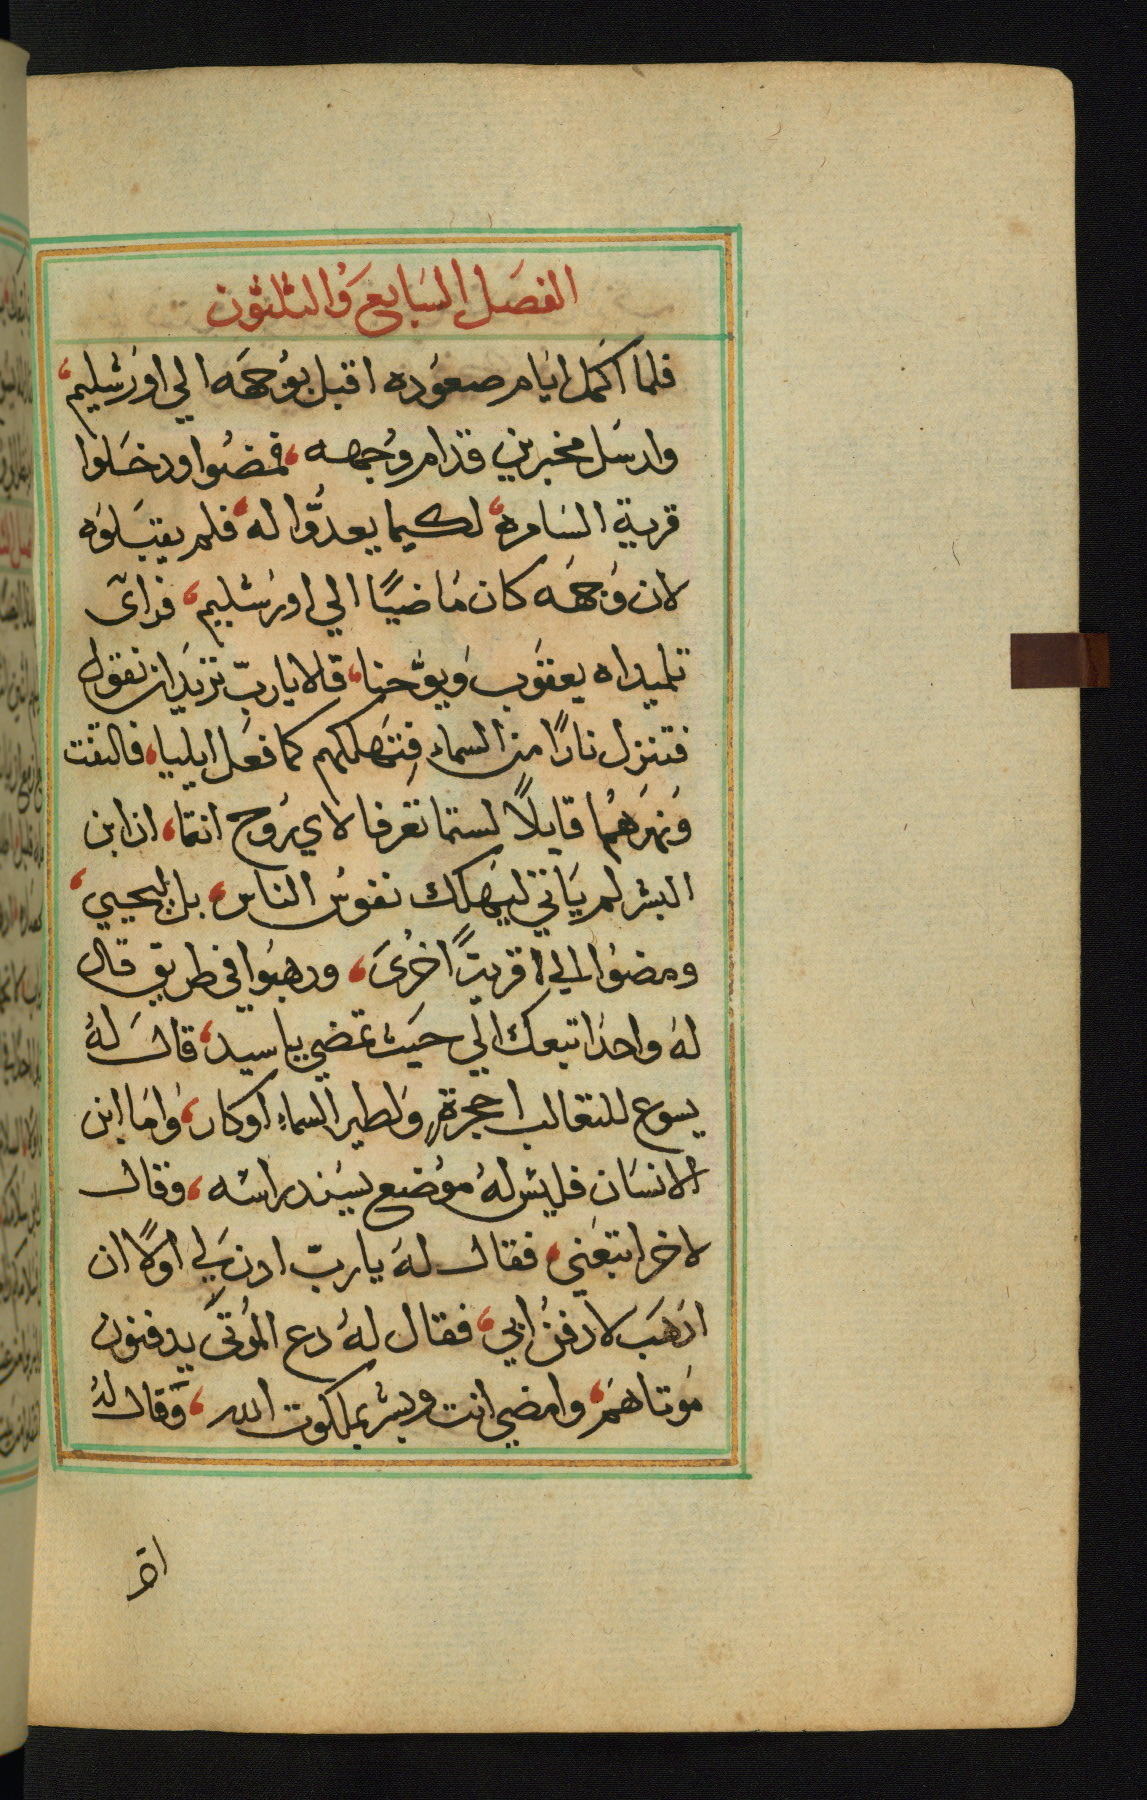 الفصَل السَابع وَالثلثون
فلما اكمل ايام صعوده اقبل بوُجهَه الي اورَشليم،
وارسَل مخبرين قدام وُجهه، فمضُوا ودخَلوُا
قرية السَامره، لكيما يعدُّوا له، فلم يقبَلوَه
لان وَجهَه كان مَاضيًا الي اورشليم، فراىَ
تلميداه يعقوَب وَيوَّحنا، قالا ياربّ تريَد ان نقول
فتنزل نارًا من السماء فتهلكهم كما فعَل ايليا، فالتفت
وَنهرَهمُا قايلاً لستما تعَرفا لاي رُوح انتما، ان ابن
البشر لم يَاتي ليَهلك نفوسُ الناس، بل ليحيي،
ومضوُا الي قريتًا اخُرىَ، ودهبوُا في طريق قال
لهَ واحدَا تبعك الي حيَث تمضي ياسيد، قالَ لهُ
يسوع للثعالب احجرةٍ، ولَطير السماء اوكار، وَامَا ابن
الانسَان فليسَ لهُ موُضع يسَند راسَه، وقال
لاخر اتبعَني، فقال لهَ ياربّ ادن لي اولاً ان
ادهَب لادفنُ ابي، فقال لهُ دع المُوتىَ يدفنون
مَوتاهمَ، وامضي انت وبشر بملكوت الله، وَقال لهُ
اخر